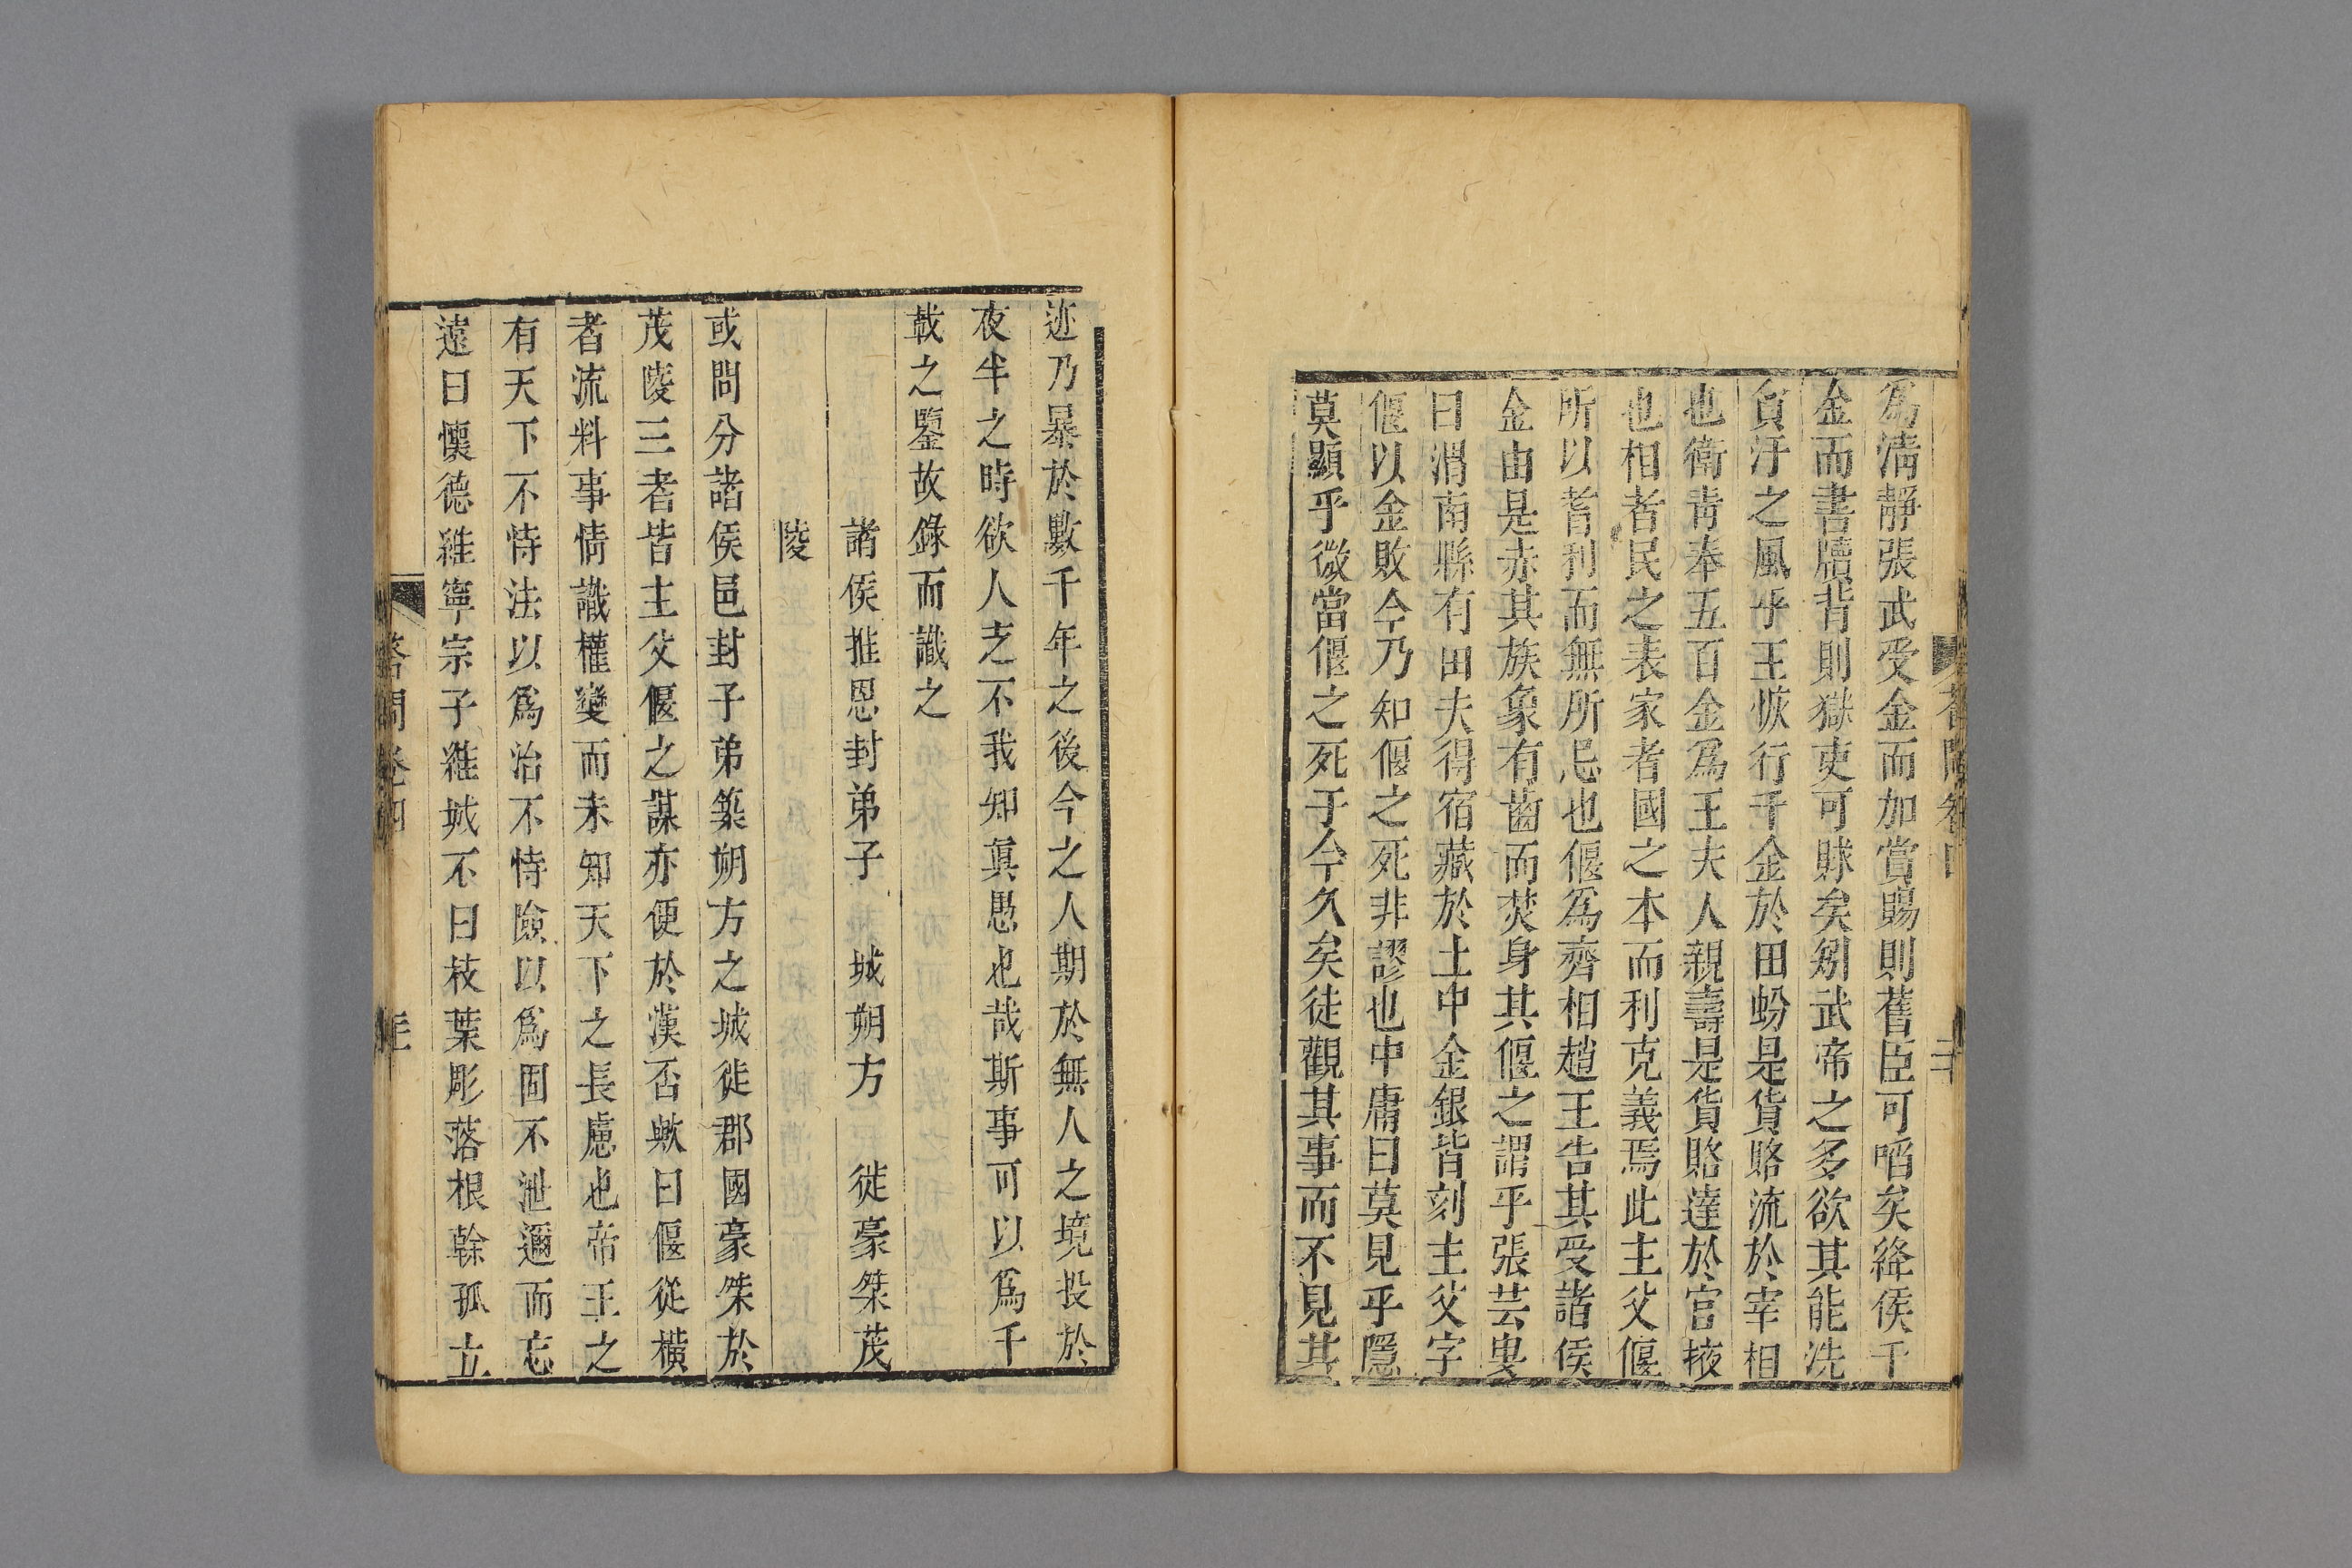 為清靜張武受金而加賞賜則舊臣可啗矣絳侯千
金而書牘背則獄吏可賕矣矧武帝之多欲其能洗
貪汙之風乎王恢行千金於田蚡是貨賂流於宰相
也衛靑奉五百金爲王夫人親壽是貨賂達於宫掖
也相者民之表家者國之本而利克義焉此主父偃
所以耆利而無所忌也偃爲齊相趙王告其受諸侯
金由是赤其族象有齒而焚身其偃之謂乎張芸叟
曰渭南縣有田夫得宿藏於土中金銀皆刻主父字
偃以金敗今乃知偃之死非謬也中庸曰莫見乎隱
莫顯乎微當偃之死于今久矣徒觀其事而不見其
迹乃暴於數千年之後今之人期於無人之境投於
夜半之時欲人之不我知眞愚也哉斯事可以爲千
載之鑒故錄而識之
諸侯推恩封弟子 城朔方 徙豪桀茂
陵
或問分諸侯邑封子弟築朔方之城徙郡國豪桀於
茂陵三者皆主父偃之謀亦便於漢否歟曰偃從橫
者流料事情識權變而未知天下之長慮也帝王之
有天下不恃法以爲治不恃險以爲固不泄邇而忘
遠曰懷德維寧宗子維城不曰枝葉彫落根榦孤立
答問卷四